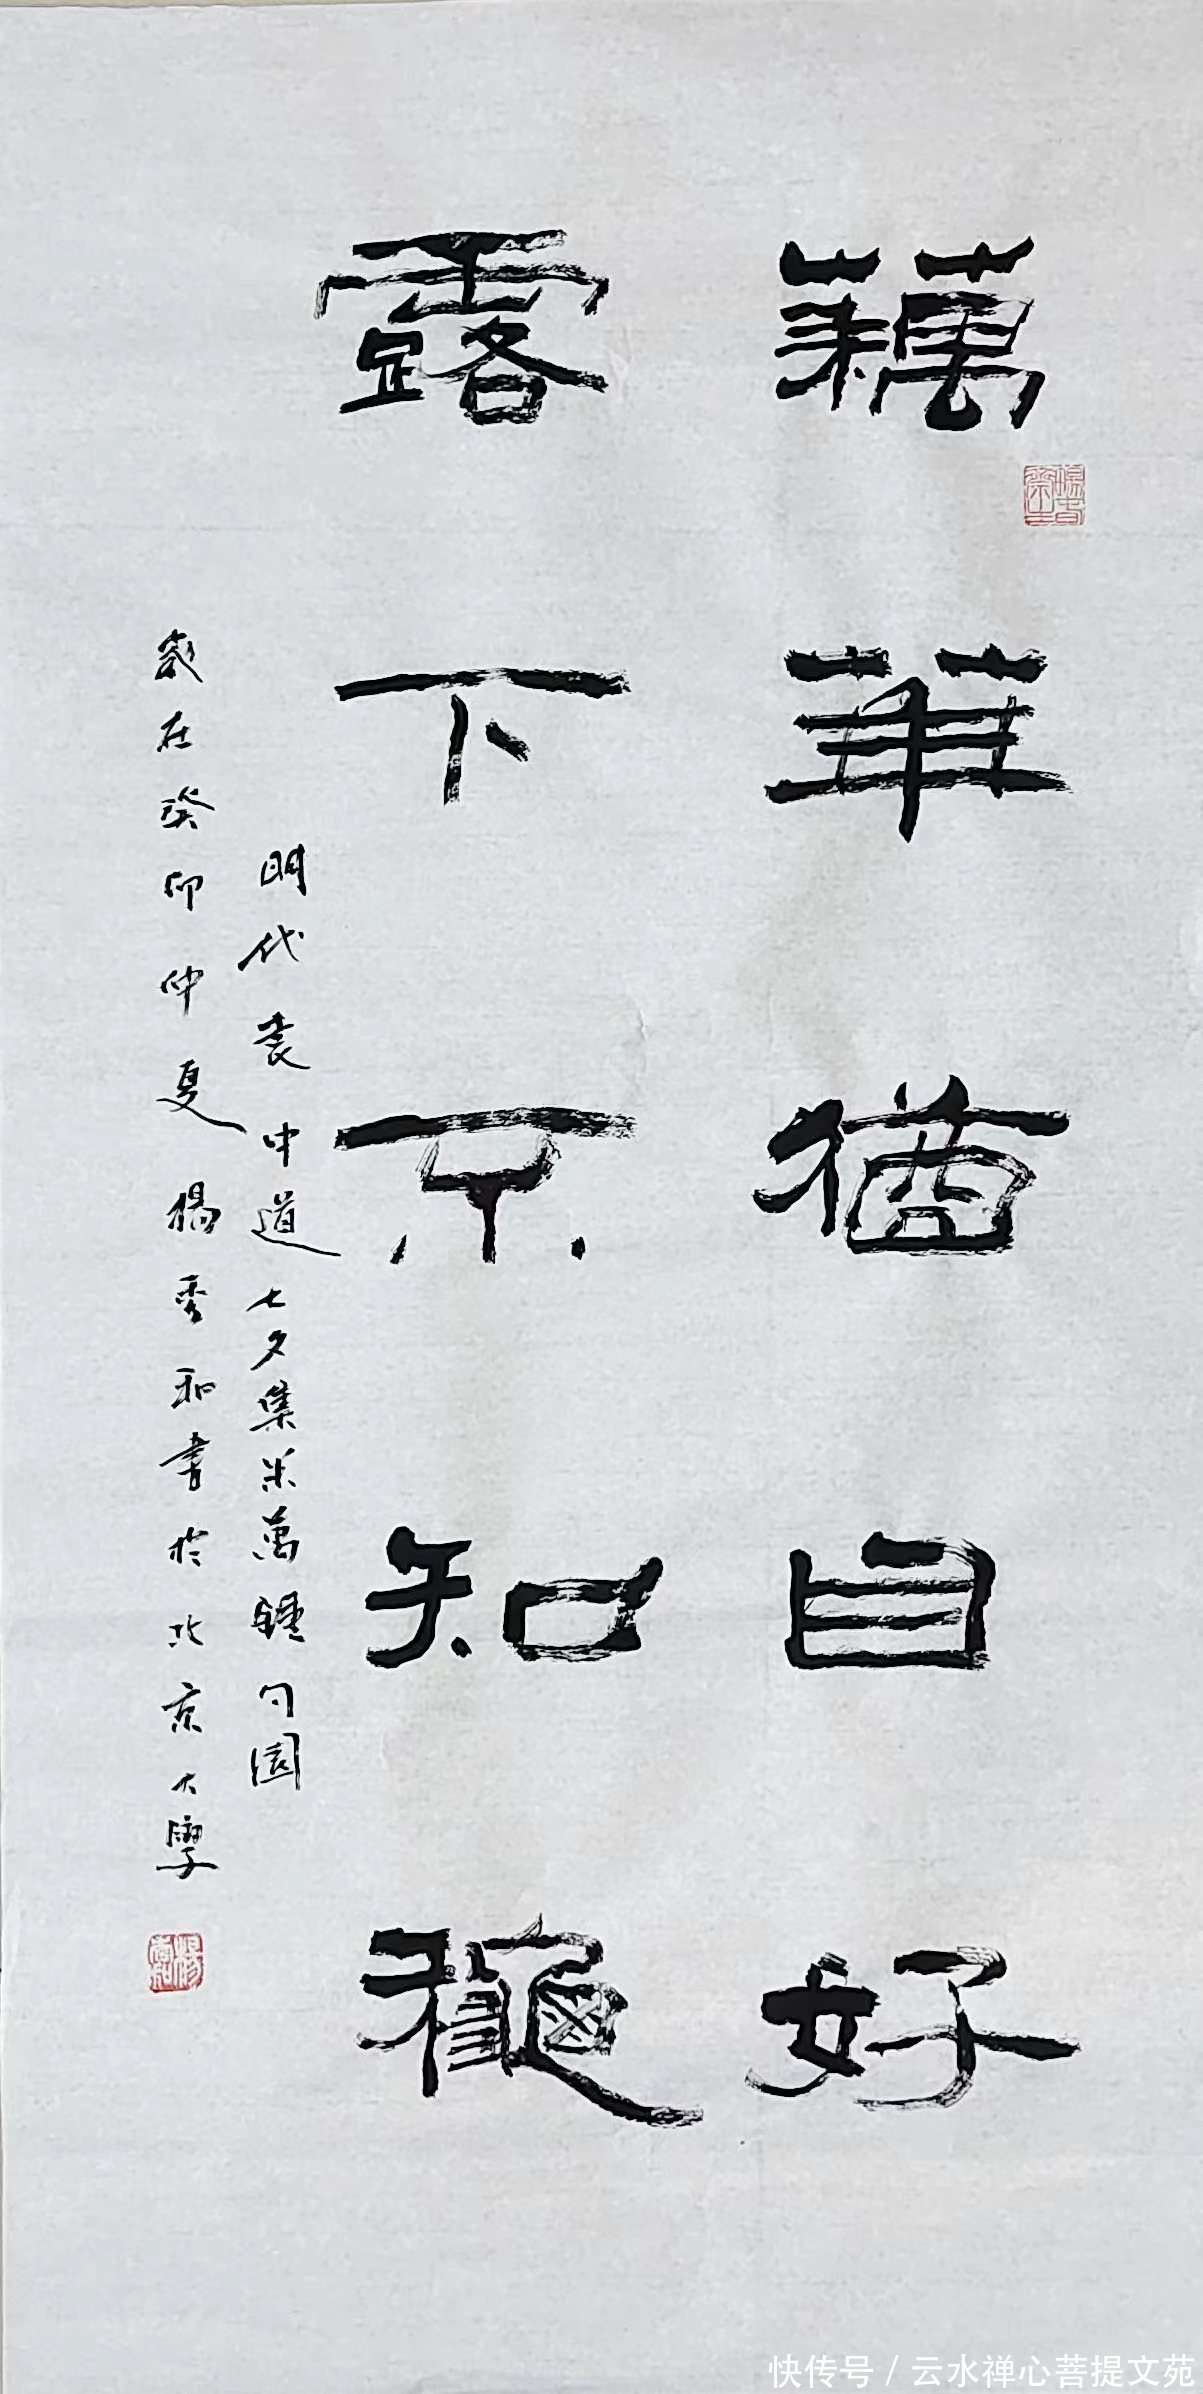 藕華猶自好
露下不知穐
明代袁中道七夕集米萬鍾勺園
歲在癸卯仲夏楊秀和書於北京大學
快传号 / 云水禅心菩提文苑